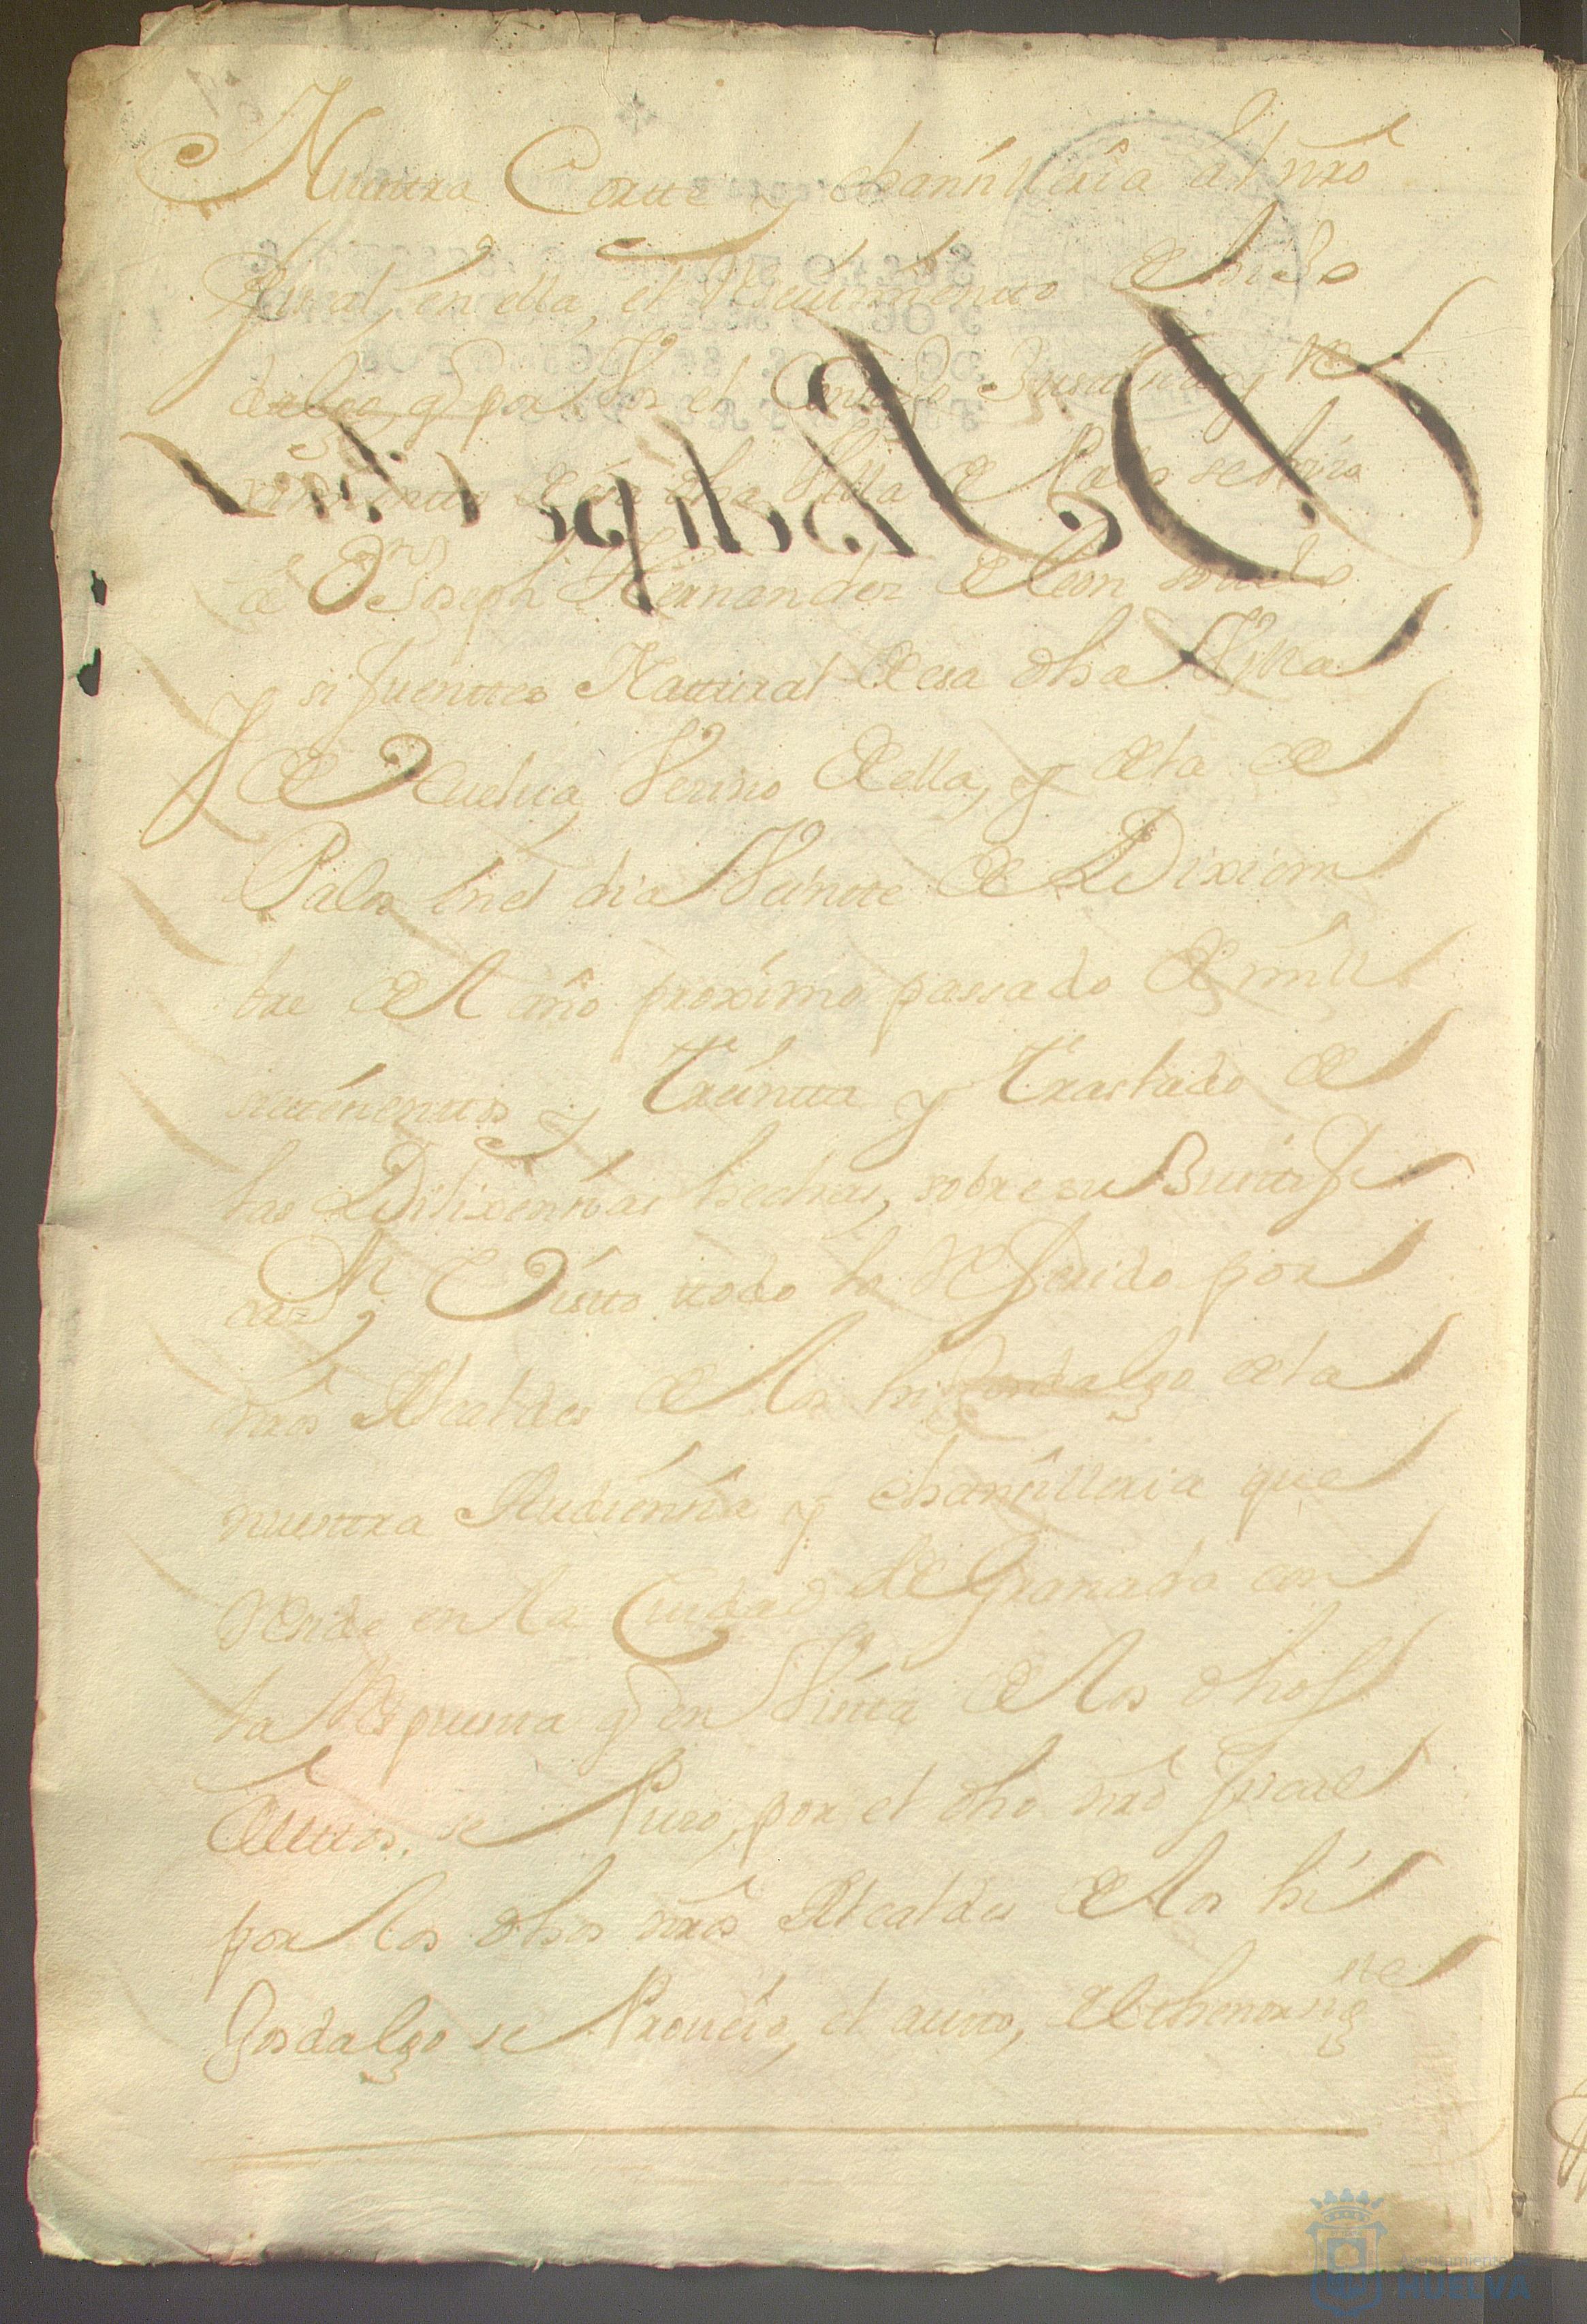 Nuestra Corte y chanzilleria al nro
fiscal en ella, el Reciuimiento de hijo
dalgo q por Vos el Conzejo Justicia y Re
ximiento de esa dha Villa de Palos se hizo
a Dn Joseph Hernandez de leon
y si fuentes Natural de esa dha Villa
de Huelua Vezino de ella, y de la de
Palos en el dia Veinte de Diziem
bre del año proximo passado de mill
setezientos y treinta y traslado de
las Dilixenzias hechas, sobre su Justifi
cazn, Visto todo lo Referido por
nros Alcaldes de los hijosdalgo de la
nuestra Audienzia y chanzilleria que
Reside en la Ciudad de Granada con
la Respuesta q en Vista de los dhos
Autos, se puso, por el dho nro fiscal
por los dhos nros Alcaldes de los hi
josdalgo se Proueio, el auto, del thenor sigte
Ayuntamiento
HUELVA